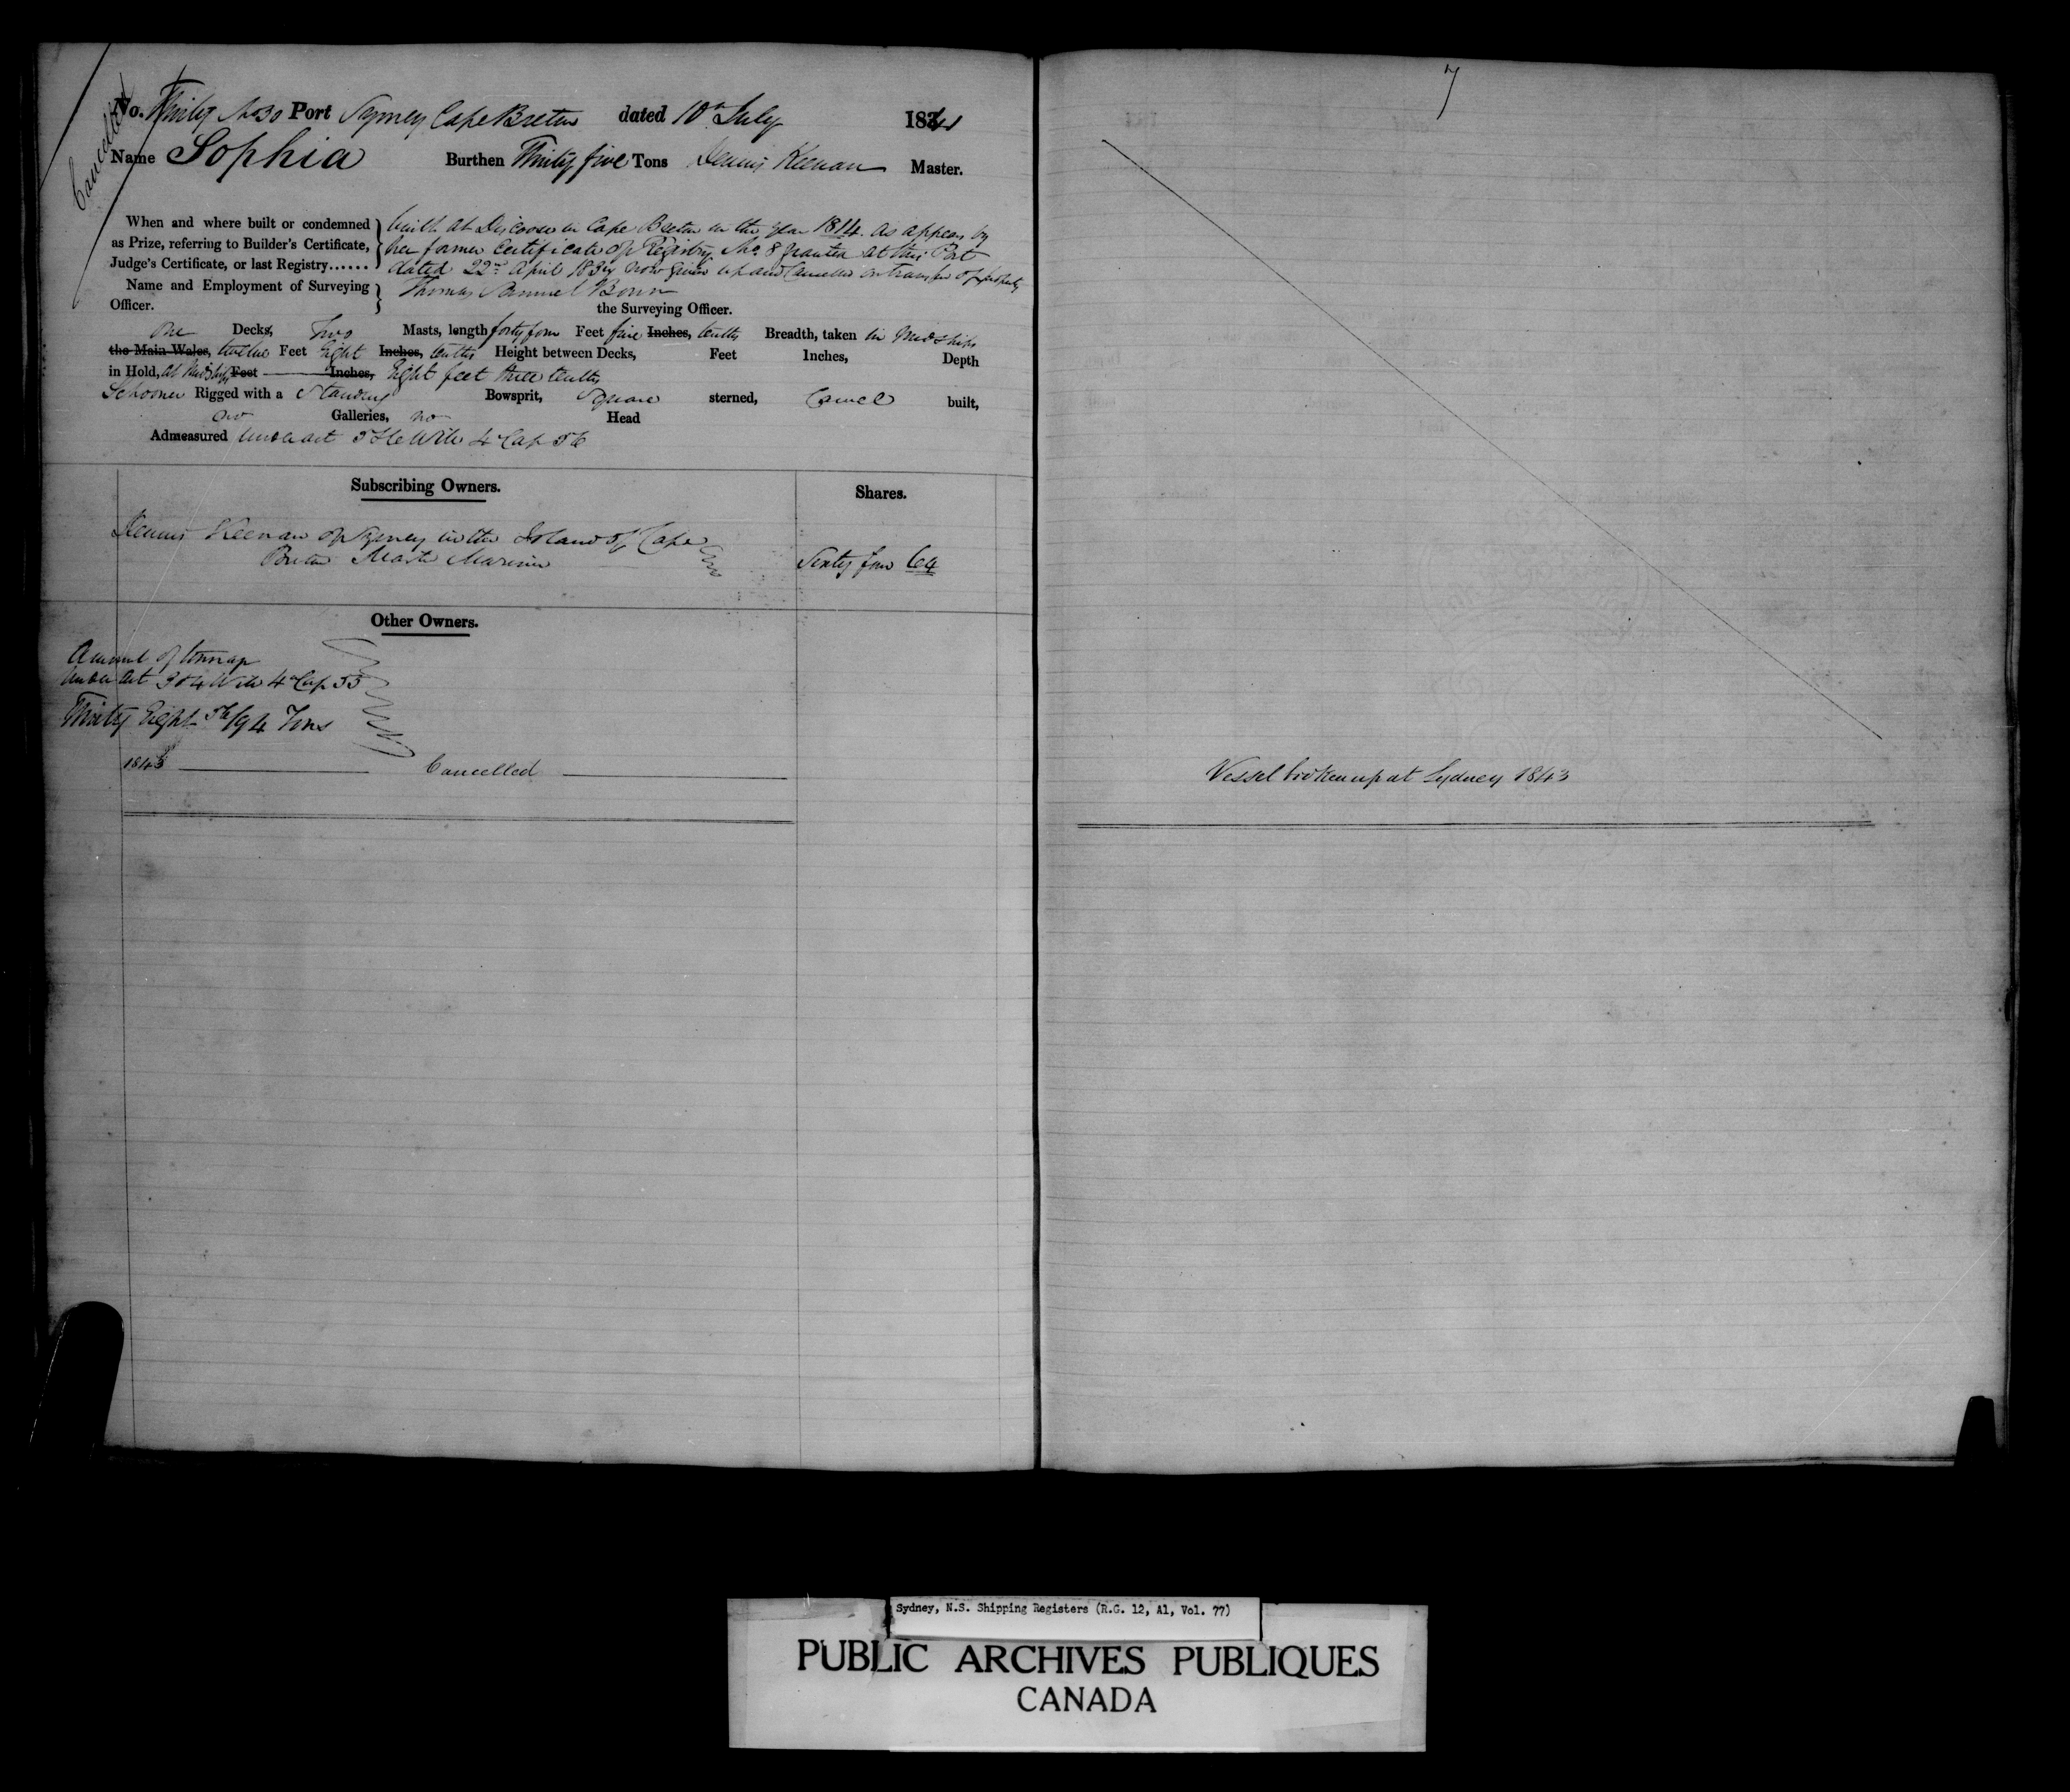 Cancelled
No. Thirty No 30 Port Sydney Cape Breton dated 10th July 1841
Name Sophia Burthen Thirty five Tons Dennis Keenan Master.
When and where built or condemned as Prize, referring to Builder's Certificate, Judge's Certificate, or last Registry......
built at in Cape Breton in the year 1814 as appears by
her former Certificate of Registry No 8 granted at this Port
dated 22nd April 183 now given up and Cancelled on transfer of property
Name and Employment of Surveying Officer.
Thomas Bown the Surveying Officer.
one Decks, Two Masts, length forty four Feet five Inches, tenths Breadth, taken in Midships
the Main Wales, twelve Feet Eight Inches, tenths Height between Decks, Feet Inches, Depth
in Hold, at Midships Feet Inches, Eight feet three tenths
Schooner Rigged with a Standing Bowsprit, Square sterned, Carvel built,
no Galleries, no Head
Admeasured under act 5 & 6 Will 4 Cap 56
Subscribing Owners. Shares.
Dennis Keenan of Sydney in the Island of Cape
Breton Master Mariner Sixty four 64
Other Owners.
Amount of tonnage
under act 3 & 4 Will 4 Cap 55
Thirty Eight 56/94 Tons
1843 Cancelled
7
Vessel broken up at Sydney 1843
Sydney, N.S. Shipping Registers (R.G. 12, A1, Vol. 77)
PUBLIC ARCHIVES PUBLIQUES
CANADA